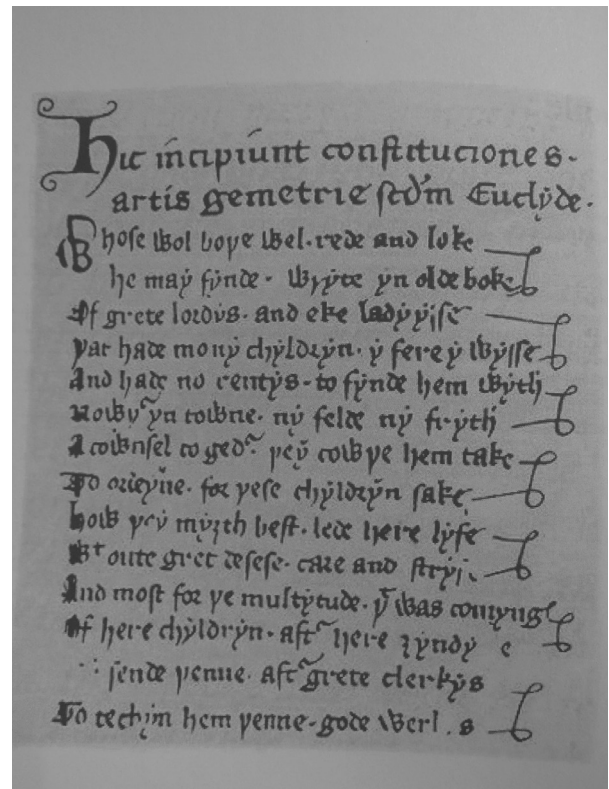 Hic incipiunt constituciones
artis gemetrie scdm Euclyde.
Whose wol boþe wel rede and loke
he may fynde wryte yn olde boke
Of grete lordys and eke ladyysse
þat hade mony chyldryn y fere y wysse
And hade no rentys to fynde hem wyth
Nowþr yn towne ny felde ny fryth
A cownsel togedr þey cowþe hem take
To ordeyne for þese chyldryn sake
how þey myȝth best lede here lyfe
Wt oute gret desese care and stryf
And most for þe multytude þt was comyng
Of here chyldryn aftr here ȝyndy e
sende þenne aftr grete clerkys
To techyn hem þenne gode werk s